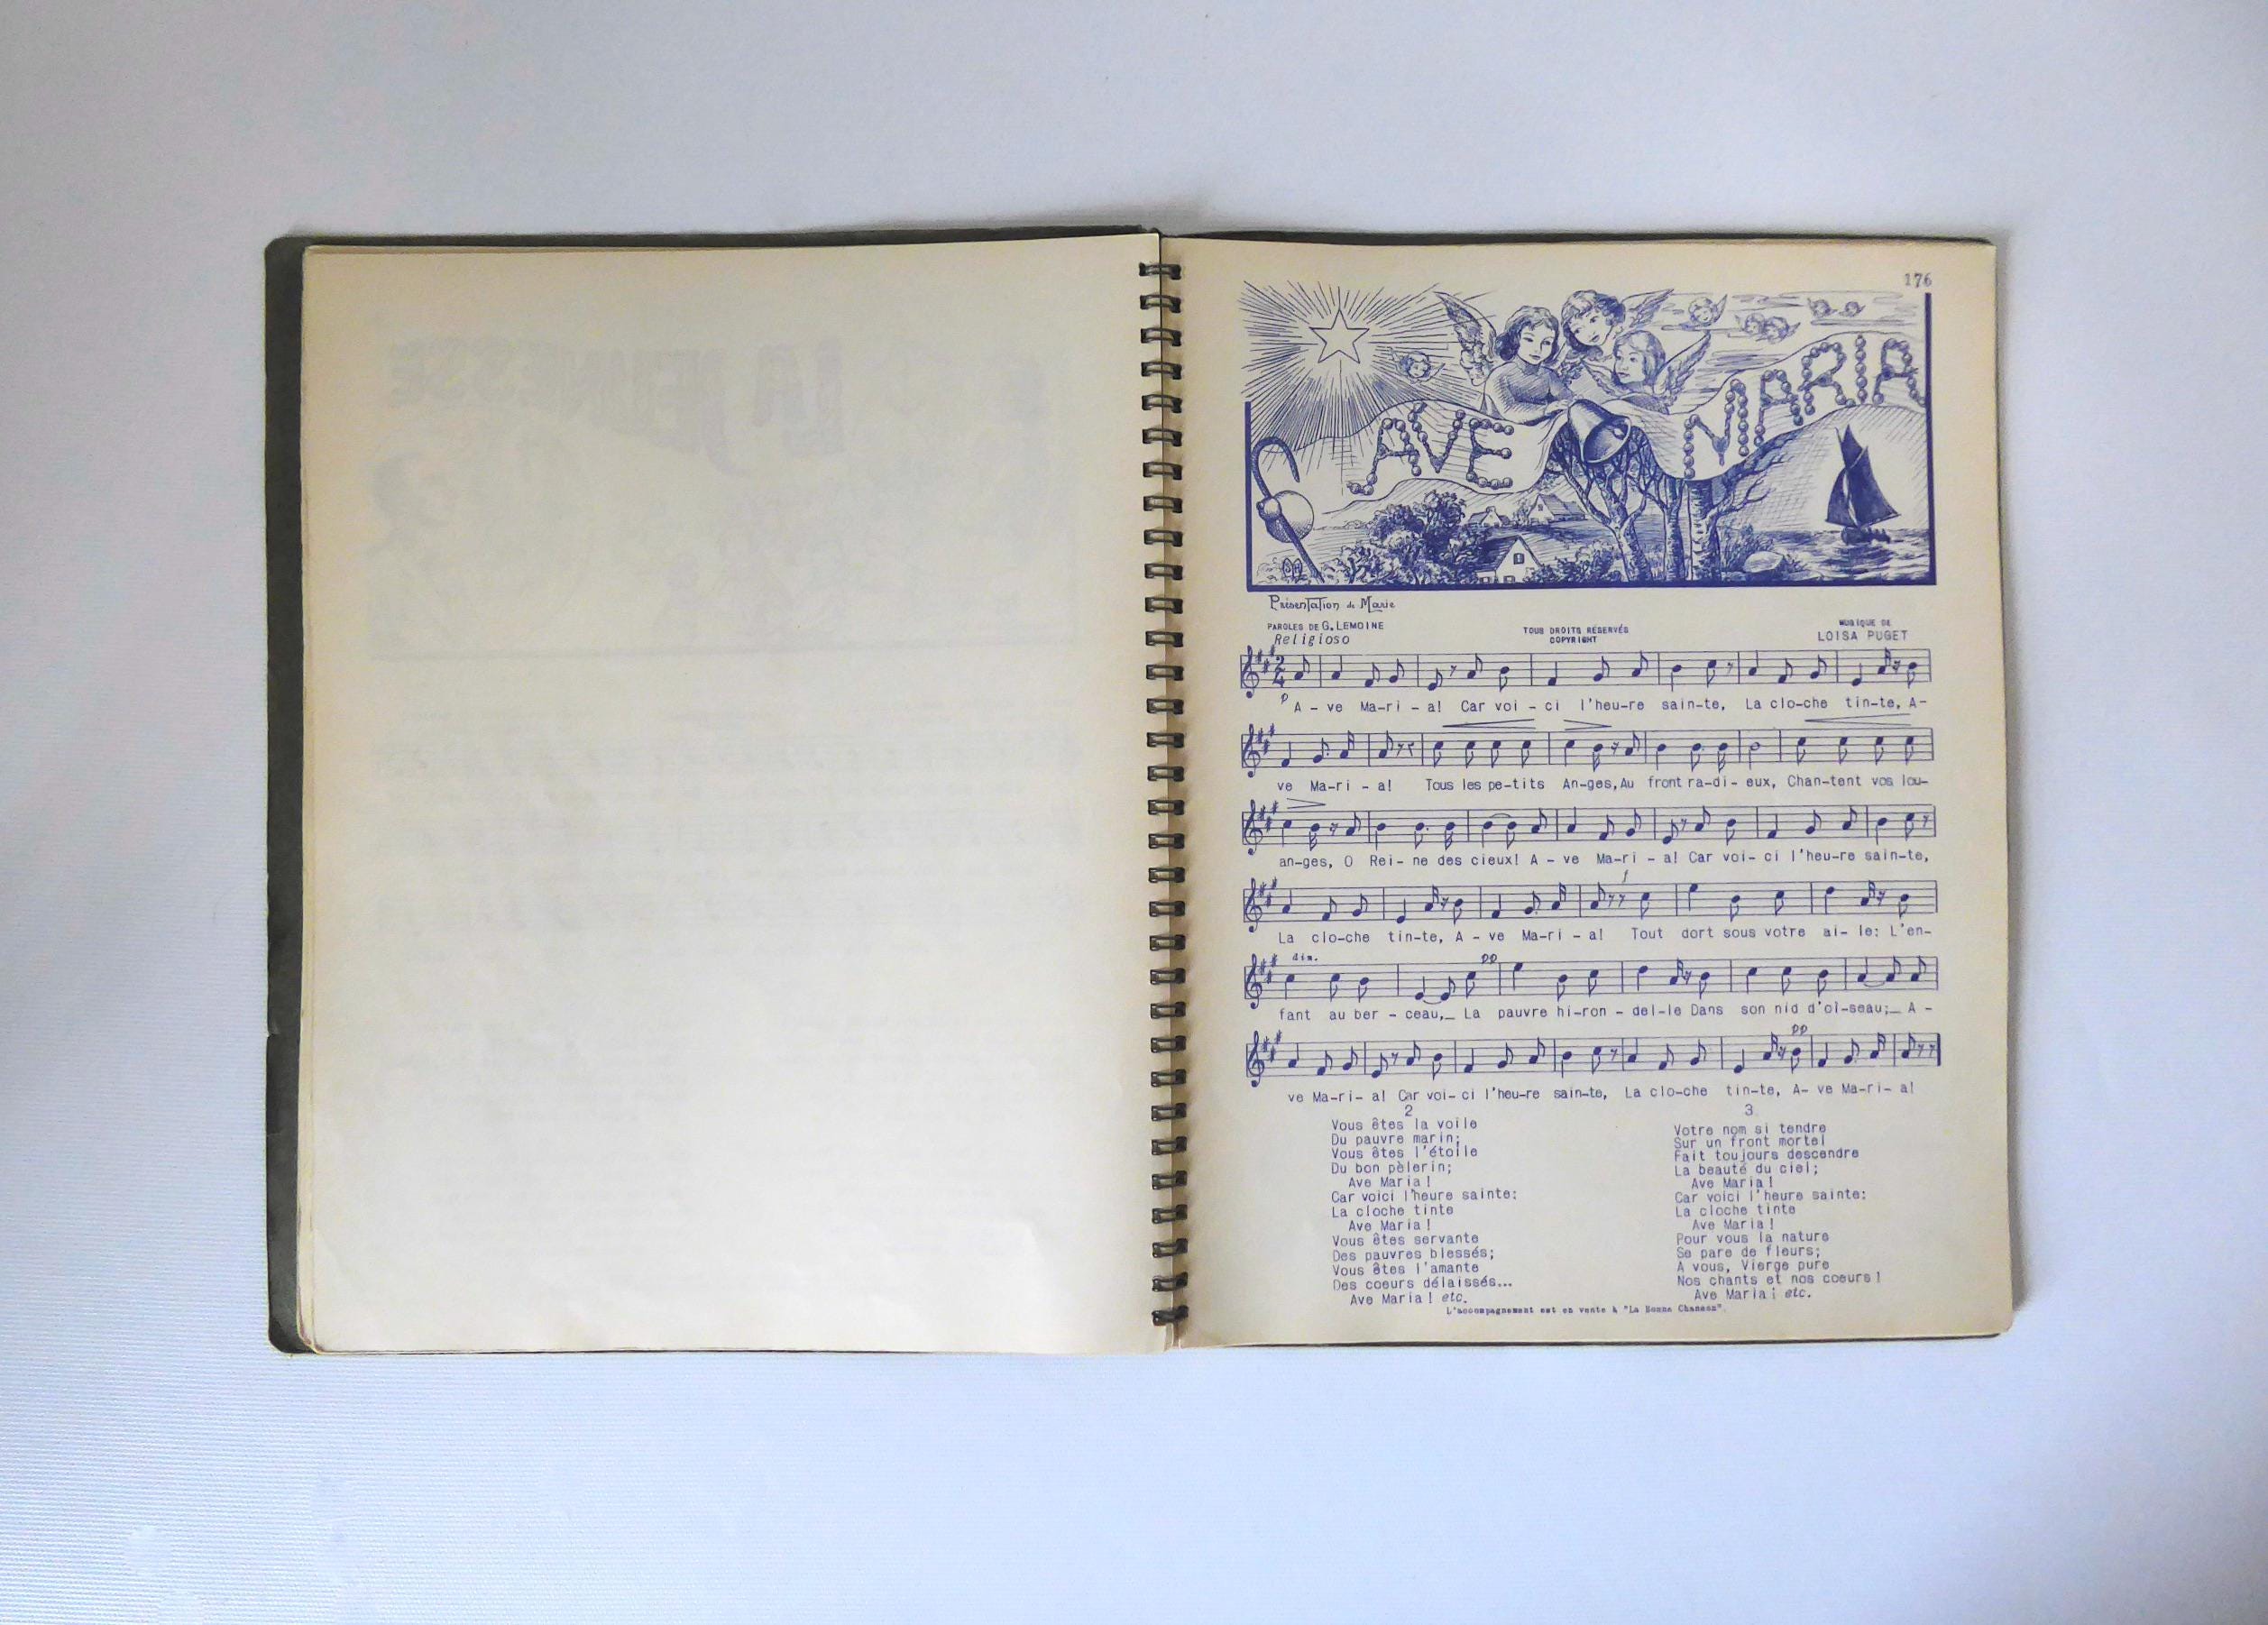 176
AVE MARIA
Présentation de Marie
PAROLES DE G. LEMOINE
TOUS DROITS RÉSERVÉS
COPYRIGHT
MUSIQUE DE
LOISA PUGET
Religioso
p
A - ve Ma-ri - a! Car voi - ci l'heu-re sain-te, La clo-che tin-te, A-
ve Ma-ri - a! Tous les pe-tits An-ges, Au front ra-di- eux, Chan-tent vos lou-
an-ges, O Rei- ne des cieux! A - ve Ma-ri - a! Car voi- ci l'heu-re sain-te,
f
La clo-che tin-te, A - ve Ma-ri - a! Tout dort sous votre ai- le: L'en-
dim. pp
fant au ber - ceau,_ La pauvre hi-ron - del-le Dans son nid d'oi-seau;_ A -
pp
ve Ma-ri- a! Car voi- ci l'heu-re sain-te, La clo-che tin-te, A- ve Ma-ri- a!
2
Vous êtes la voile
Du pauvre marin;
Vous êtes l'étoile
Du bon pèlerin;
Ave Maria!
Car voici l'heure sainte:
La cloche tinte
Ave Maria!
Vous êtes servante
Des pauvres blessés;
Vous êtes l'amante
Des coeurs délaissés...
Ave Maria! etc.
3
Votre nom si tendre
Sur un front mortel
Fait toujours descendre
La beauté du ciel;
Ave Maria!
Car voici l'heure sainte:
La cloche tinte
Ave Maria!
Pour vous la nature
Se pare de fleurs;
A vous, Vierge pure
Nos chants et nos coeurs!
Ave Maria! etc.
L'accompagnement est en vente à "La Bonne Chanson".